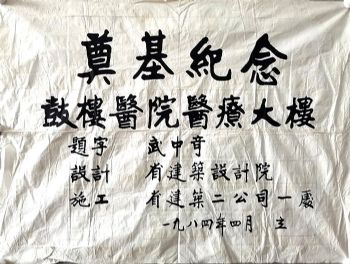 奠基紀念
鼓樓醫院醫療大樓
題字 武中奇
設計 省建築設計院
施工 省建築二公司一處
一九八四年四月 立